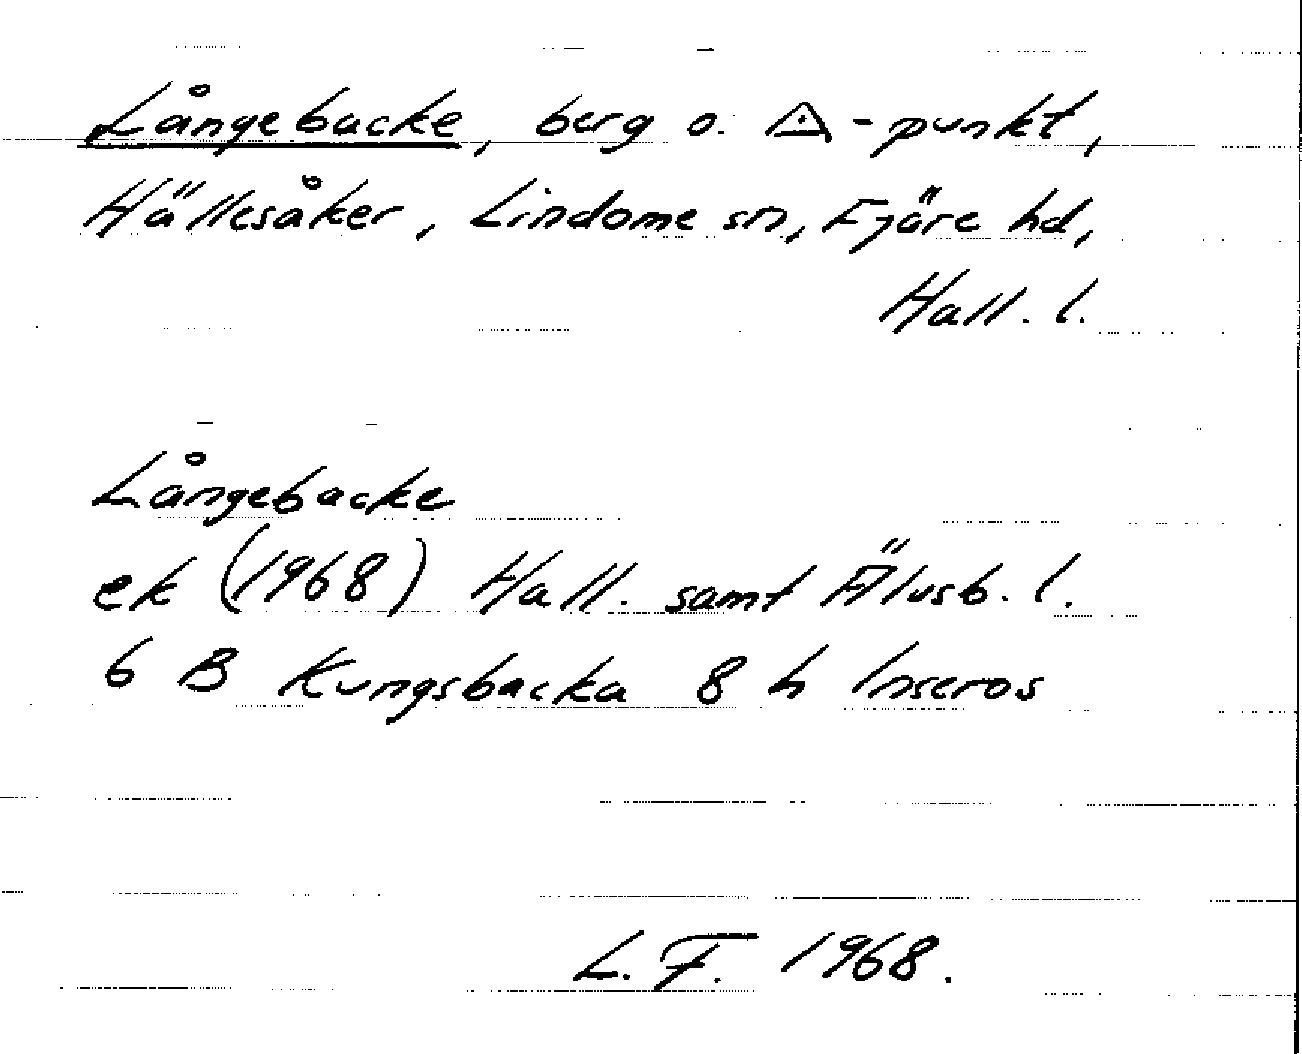 Långebacke, berg o. △-punkt,
Hällesåker, Lindome sn, Fjäre hd,
Hall. l.
Långebacke
ek (1968) Hall. samt Älvsb. l.
6 B Kungsbacka 8 h Inseros
L. F. 1968.